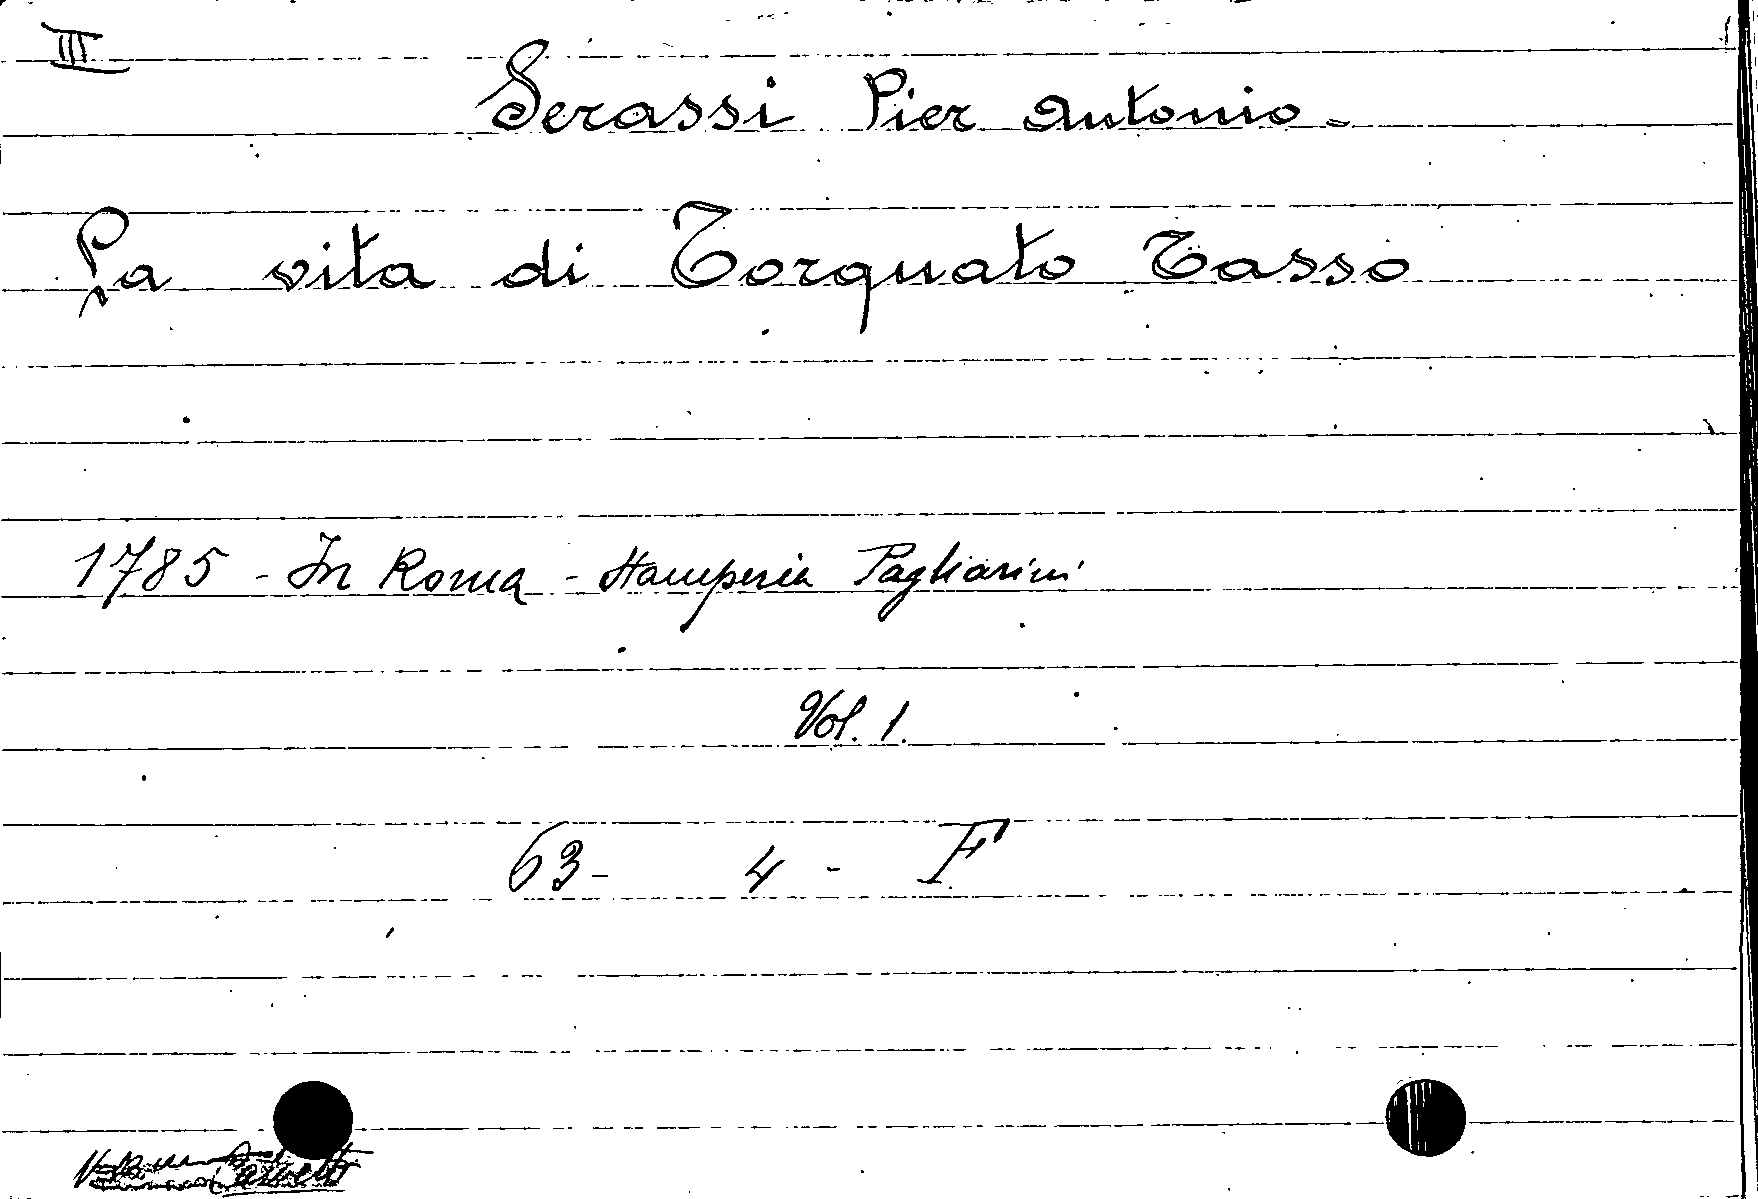 III
Serassi Pier Antonio -
La vita di Torquato Tasso
1785 - In Roma - Stamperia Pagliarini
Vol. 1.
63 - 4 - F